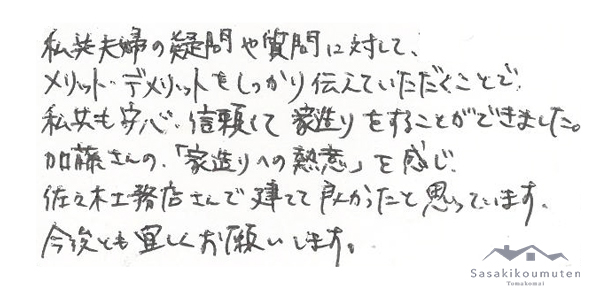 私共夫婦の疑問や質問に対して、
メリット・デメリットをしっかり伝えていただくことで
私共も安心・信頼して家造りをすることができました。
加藤さんの、「家造りへの熱意」を感じ、
佐々木工務店さんで建てて良かったと思っています。
今後とも宜しくお願いします。
Sasakikoumuten
Tomakomai